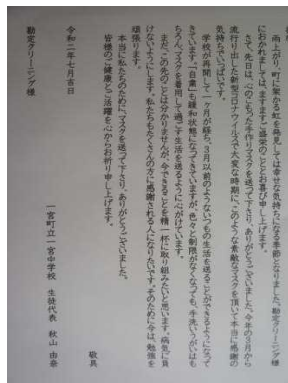 雨上がり、町に架かる虹を発見しては幸せな気持ちになる季節となりました。勘定クリーニング様
におかれましては、ますますご盛栄のこととお喜び申し上げます。
さて、先日は、心のこもった手作りマスクを送って下さり、ありがとうございました。今年の3月から
流行り出した新型コロナウイルスで大変な時期に、このような素敵なマスクを頂いて本当に感謝の
気持ちでいっぱいです。
学校が再開して一ヶ月が経ち、3月以前のようないつもの生活を送ることができるようになって
きています。「自粛」も緩和状態になってきていますが、色々と制限がなくなっても、手洗いうがいはも
ちろん、マスクを着用して過ごす生活を送るように心がけています。
まだ、この先のことは分かりませんが、今できることを精一杯に取り組みたいと思います。病気に負
けないようにします。私たちもたくさんの方に感謝される人になりたいです。そのために今は、勉強を
頑張ります。
本当に私たちのために、マスクを送って下さり、ありがとうございました。
皆様のご健康とご活躍を心からお祈り申し上げます。
敬具
令和二年七月吉日
一宮町立一宮中学校 生徒代表 秋山 由奈
勘定クリーニング様